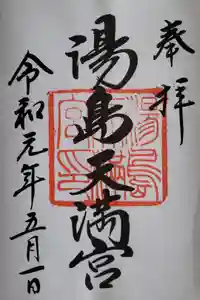 奉拝
湯島天満宮
令和元年五月一日